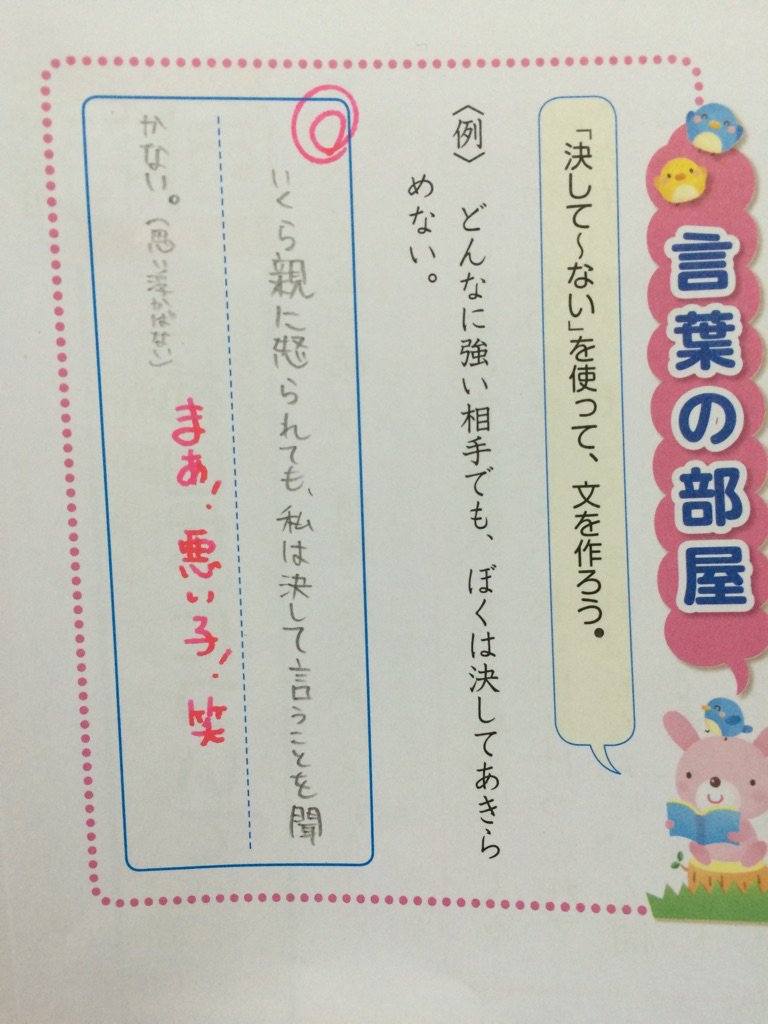 言葉の部屋
「決して～ない」を使って、文を作ろう。
〈例〉 どんなに強い相手でも、ぼくは決してあきら
めない。
いくら親に怒られても、私は決して言うことを聞
かない。(思い浮かばない)
まあ!悪い子!笑